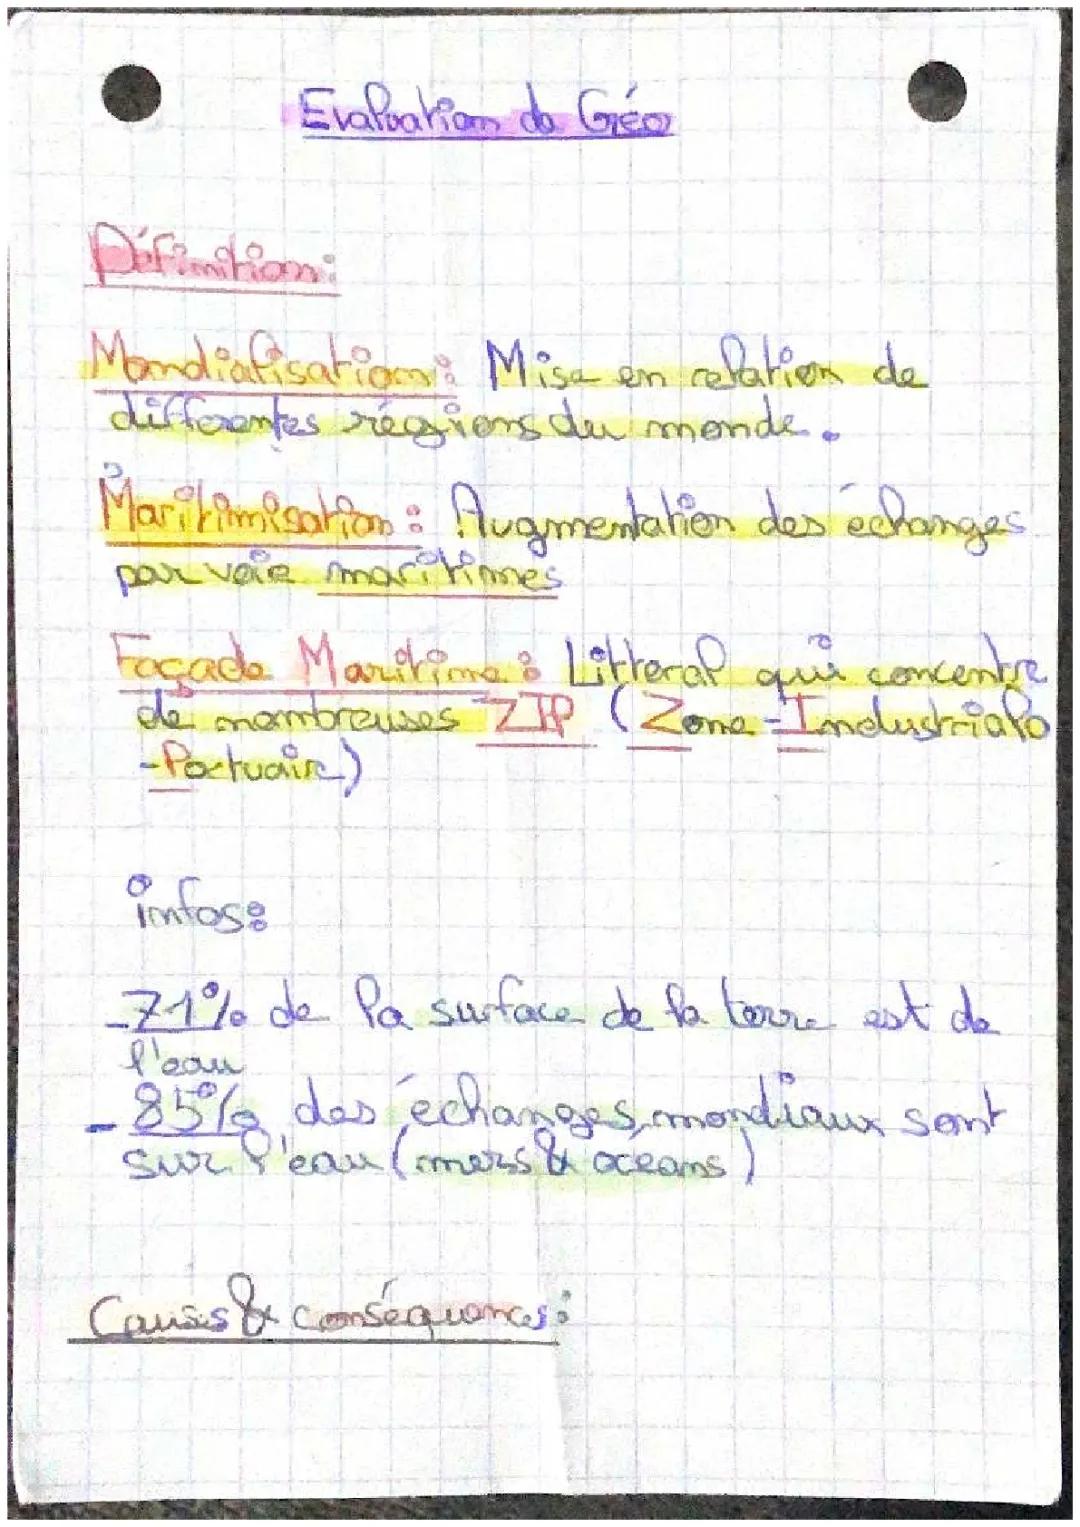 Evaluation de Géo
Définition:
Mondialisation: Mise en relation de
differentes régions du monde.
Maritimisation: Augmentation des échanges
par voie maritimes
Façade Maritime: Litteral qui concentre
de nombreuses ZIP (Zone-Industriale
-Portuaire)
infos:
-71% de la surface de la terre est de
l'eau
-85% des échanges mondiaux sont
sur l'eau (mers & oceans)
Causes & conséquences: